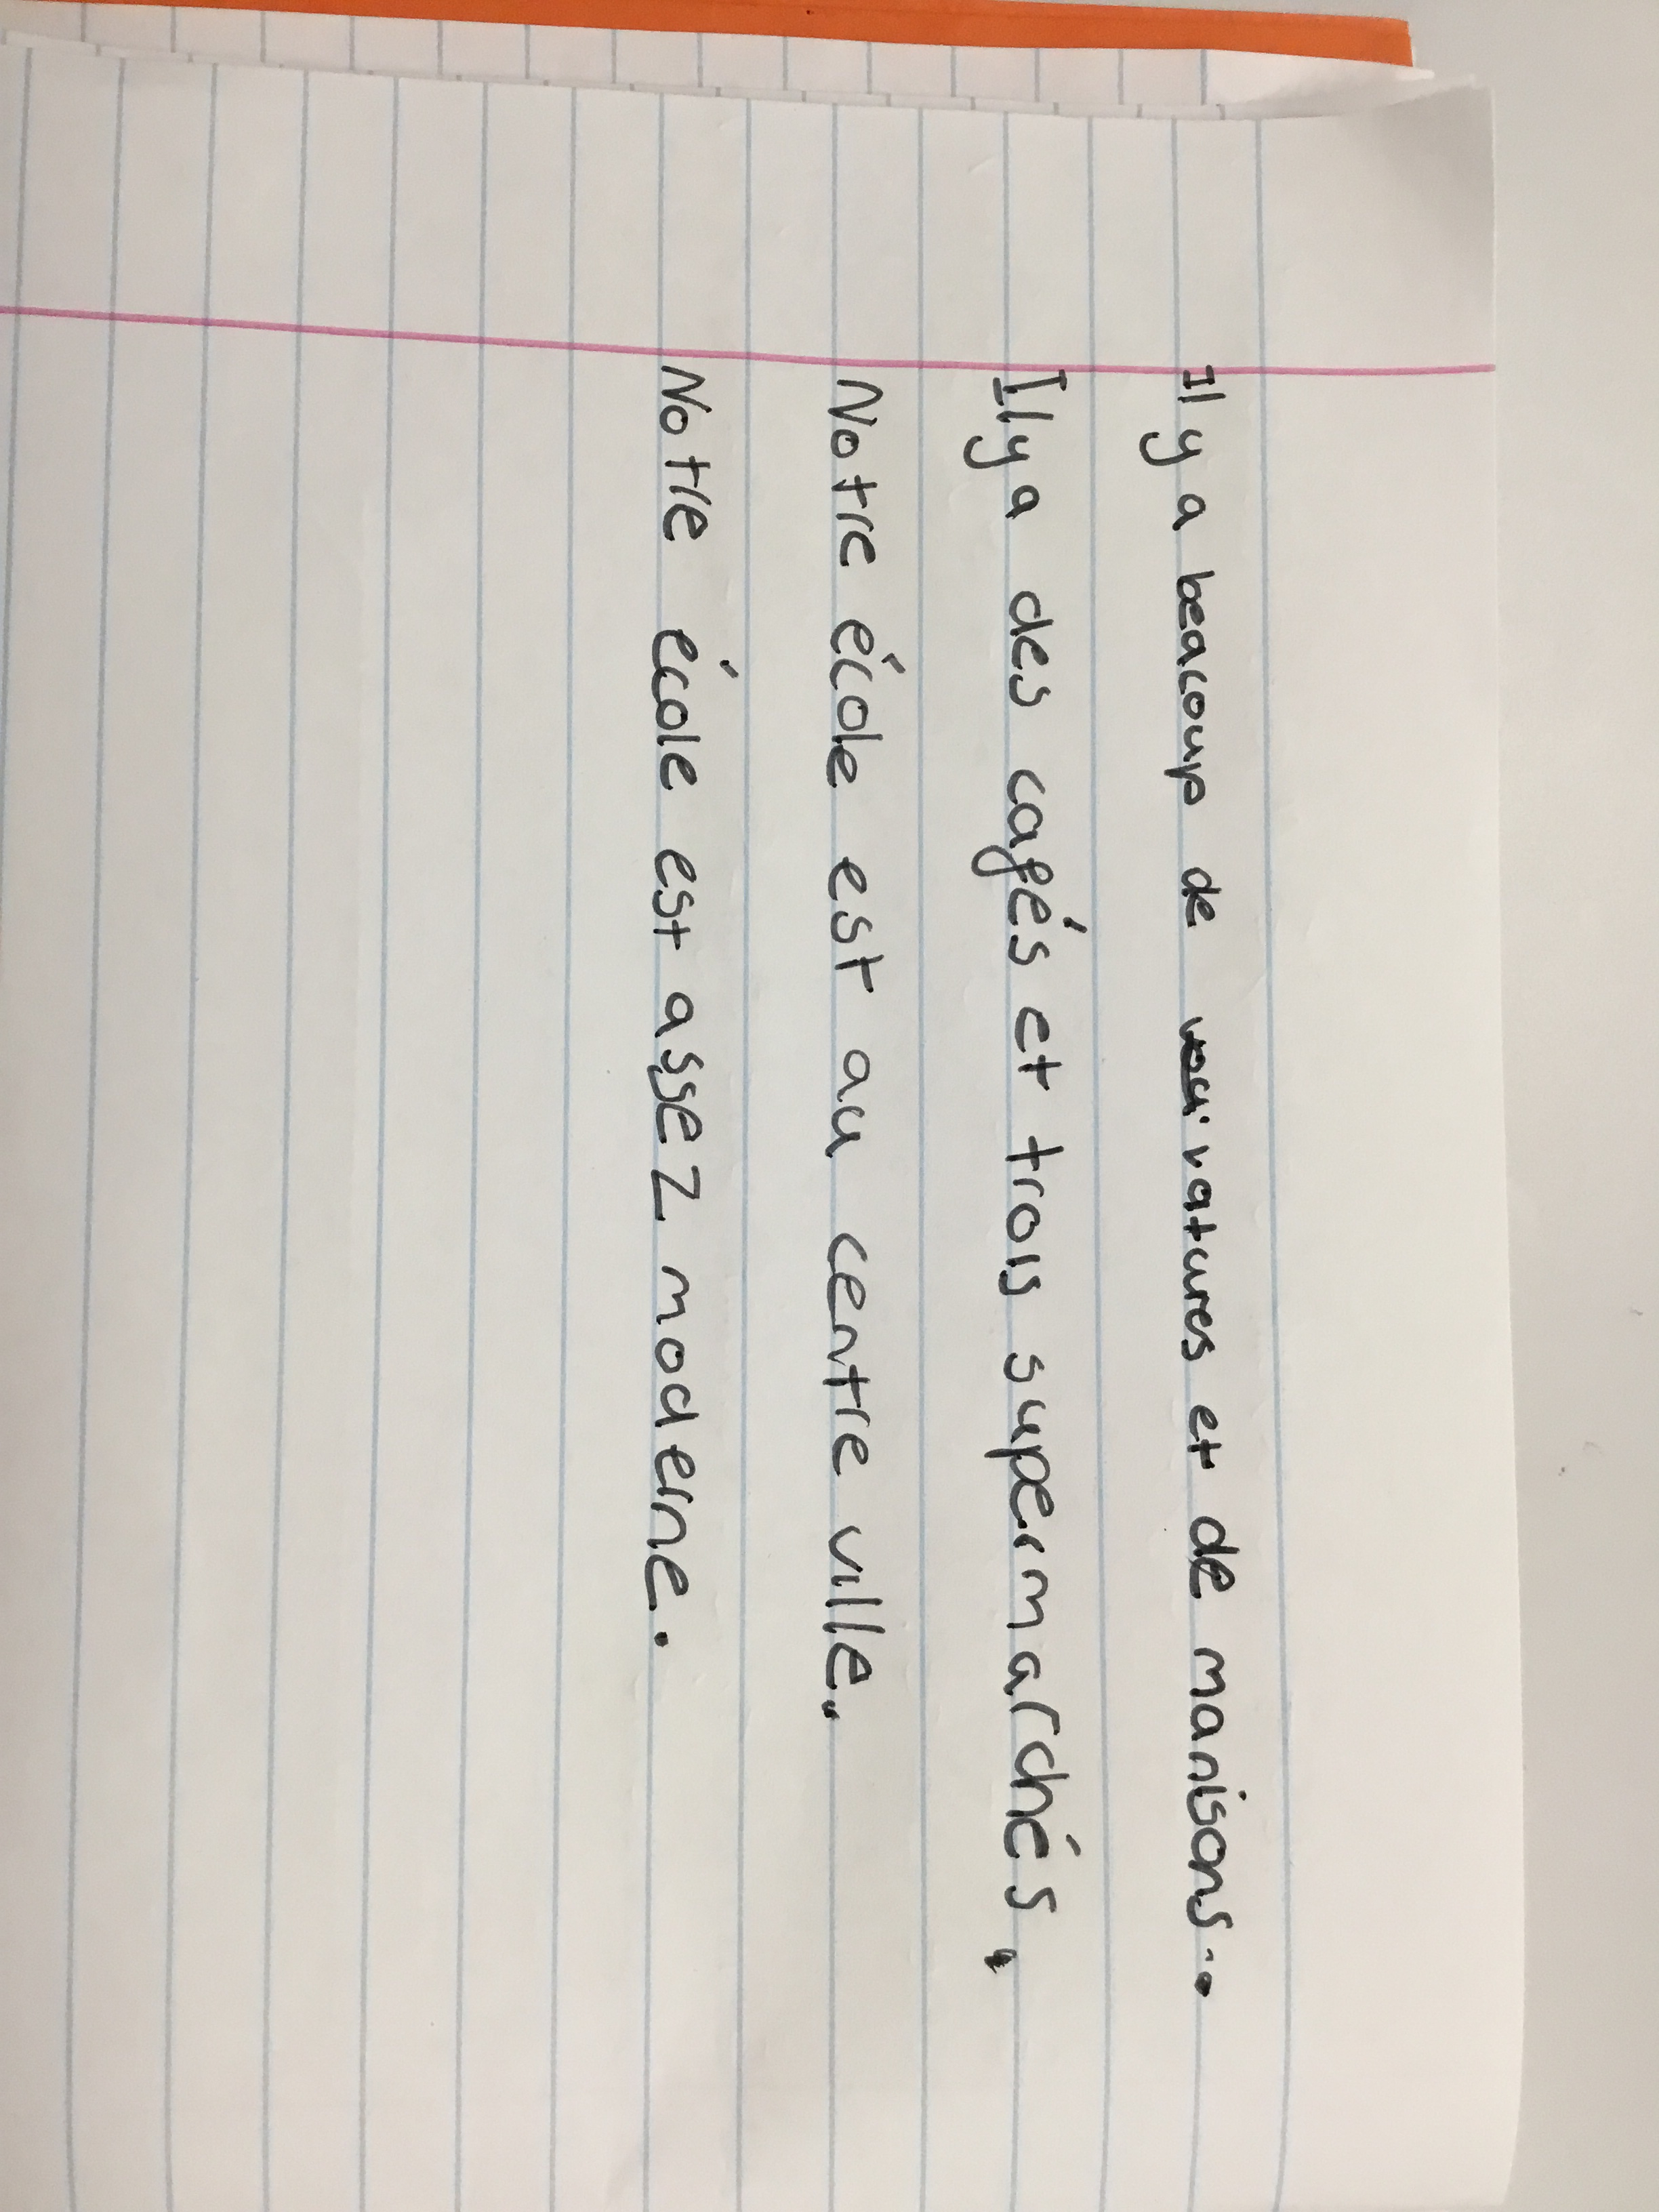 Il y a beacoup de vatures et de manisons..
Il y a des cafés et trois supermarchés.
Notre école est au centre ville.
Notre école est assez moderne.